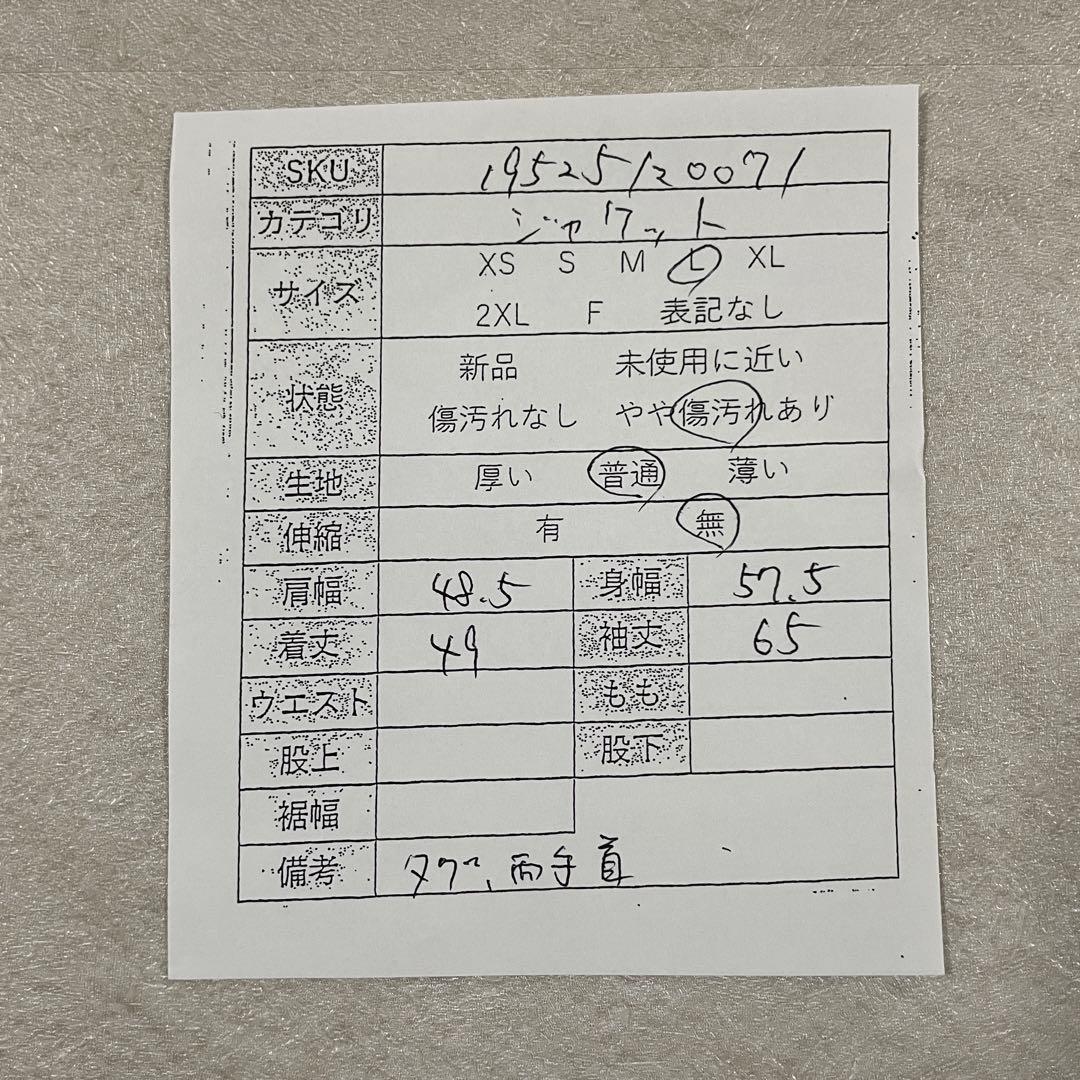 SKU 19525120071
カテゴリ ジャケット
サイズ XS S M L XL
2XL F 表記なし
状態 新品 未使用に近い
傷汚れなし やや傷汚れあり
生地 厚い 普通 薄い
伸縮 有 無
肩幅 48.5 身幅 57.5
着丈 49 袖丈 65
ウエスト もも
股上 股下
裾幅
備考 タグ、両手首